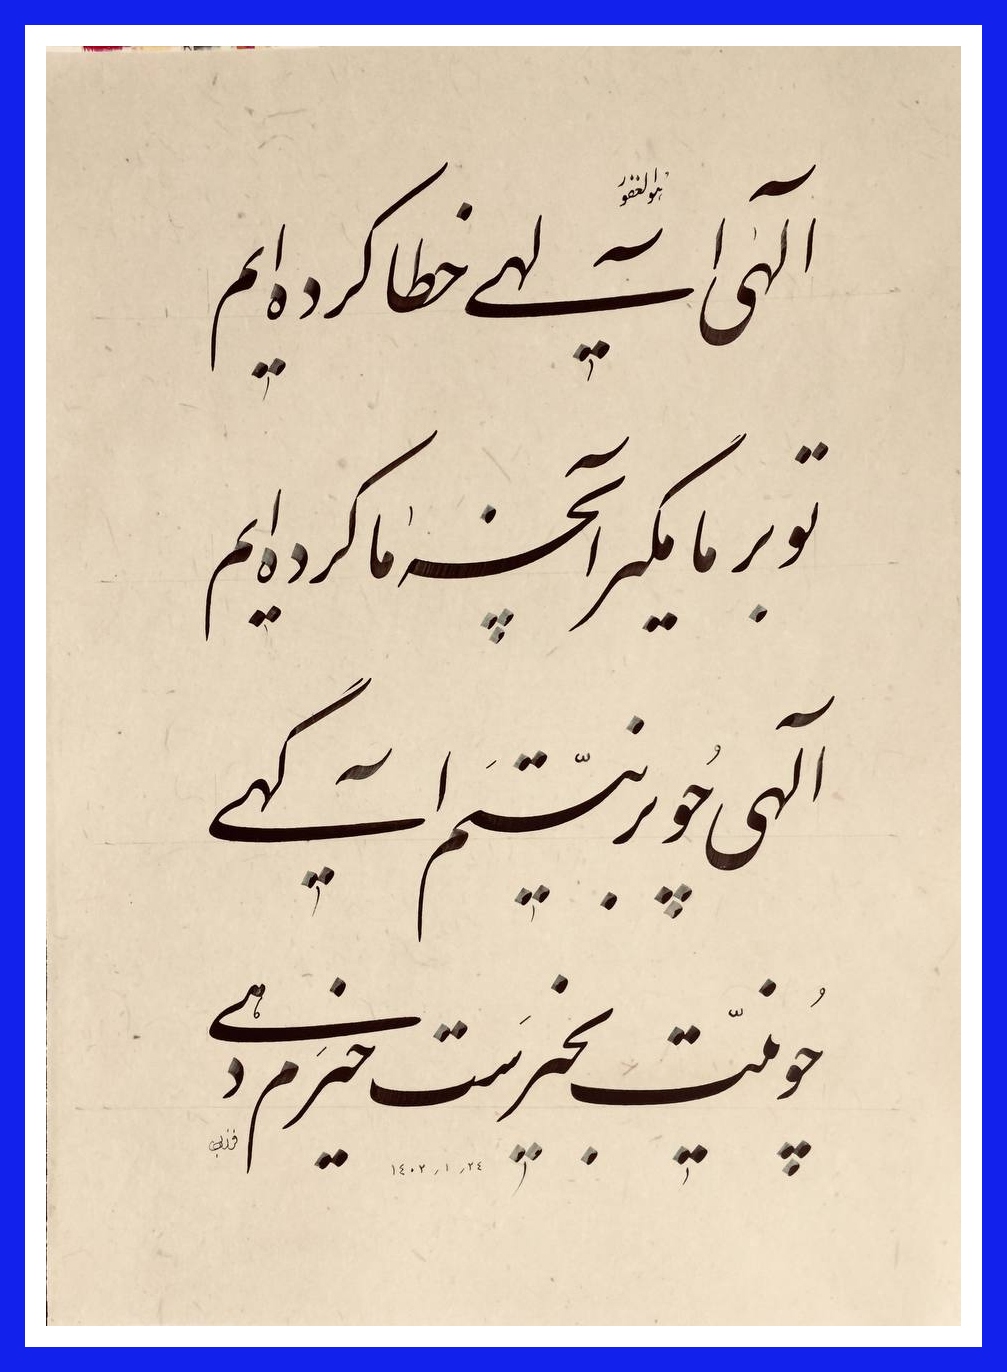 هوالغفور
الهی الهی خطا کرده‌ایم
تو بر ما مگیر آنچه ما کرده‌ایم
الهی چو بر نیّتم آگهی
چو نیّت بخیرست خیرم دهی
۱۴۰۲/۱/۲٤